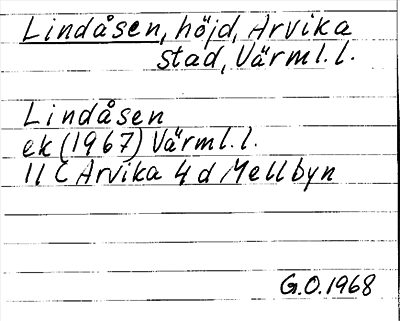 Lindåsen, höjd, Arvika
stad, Värml.l.
Lindåsen
ek (1967) Värml.l.
11 C Arvika 4 d Mellbyn
G.O. 1968